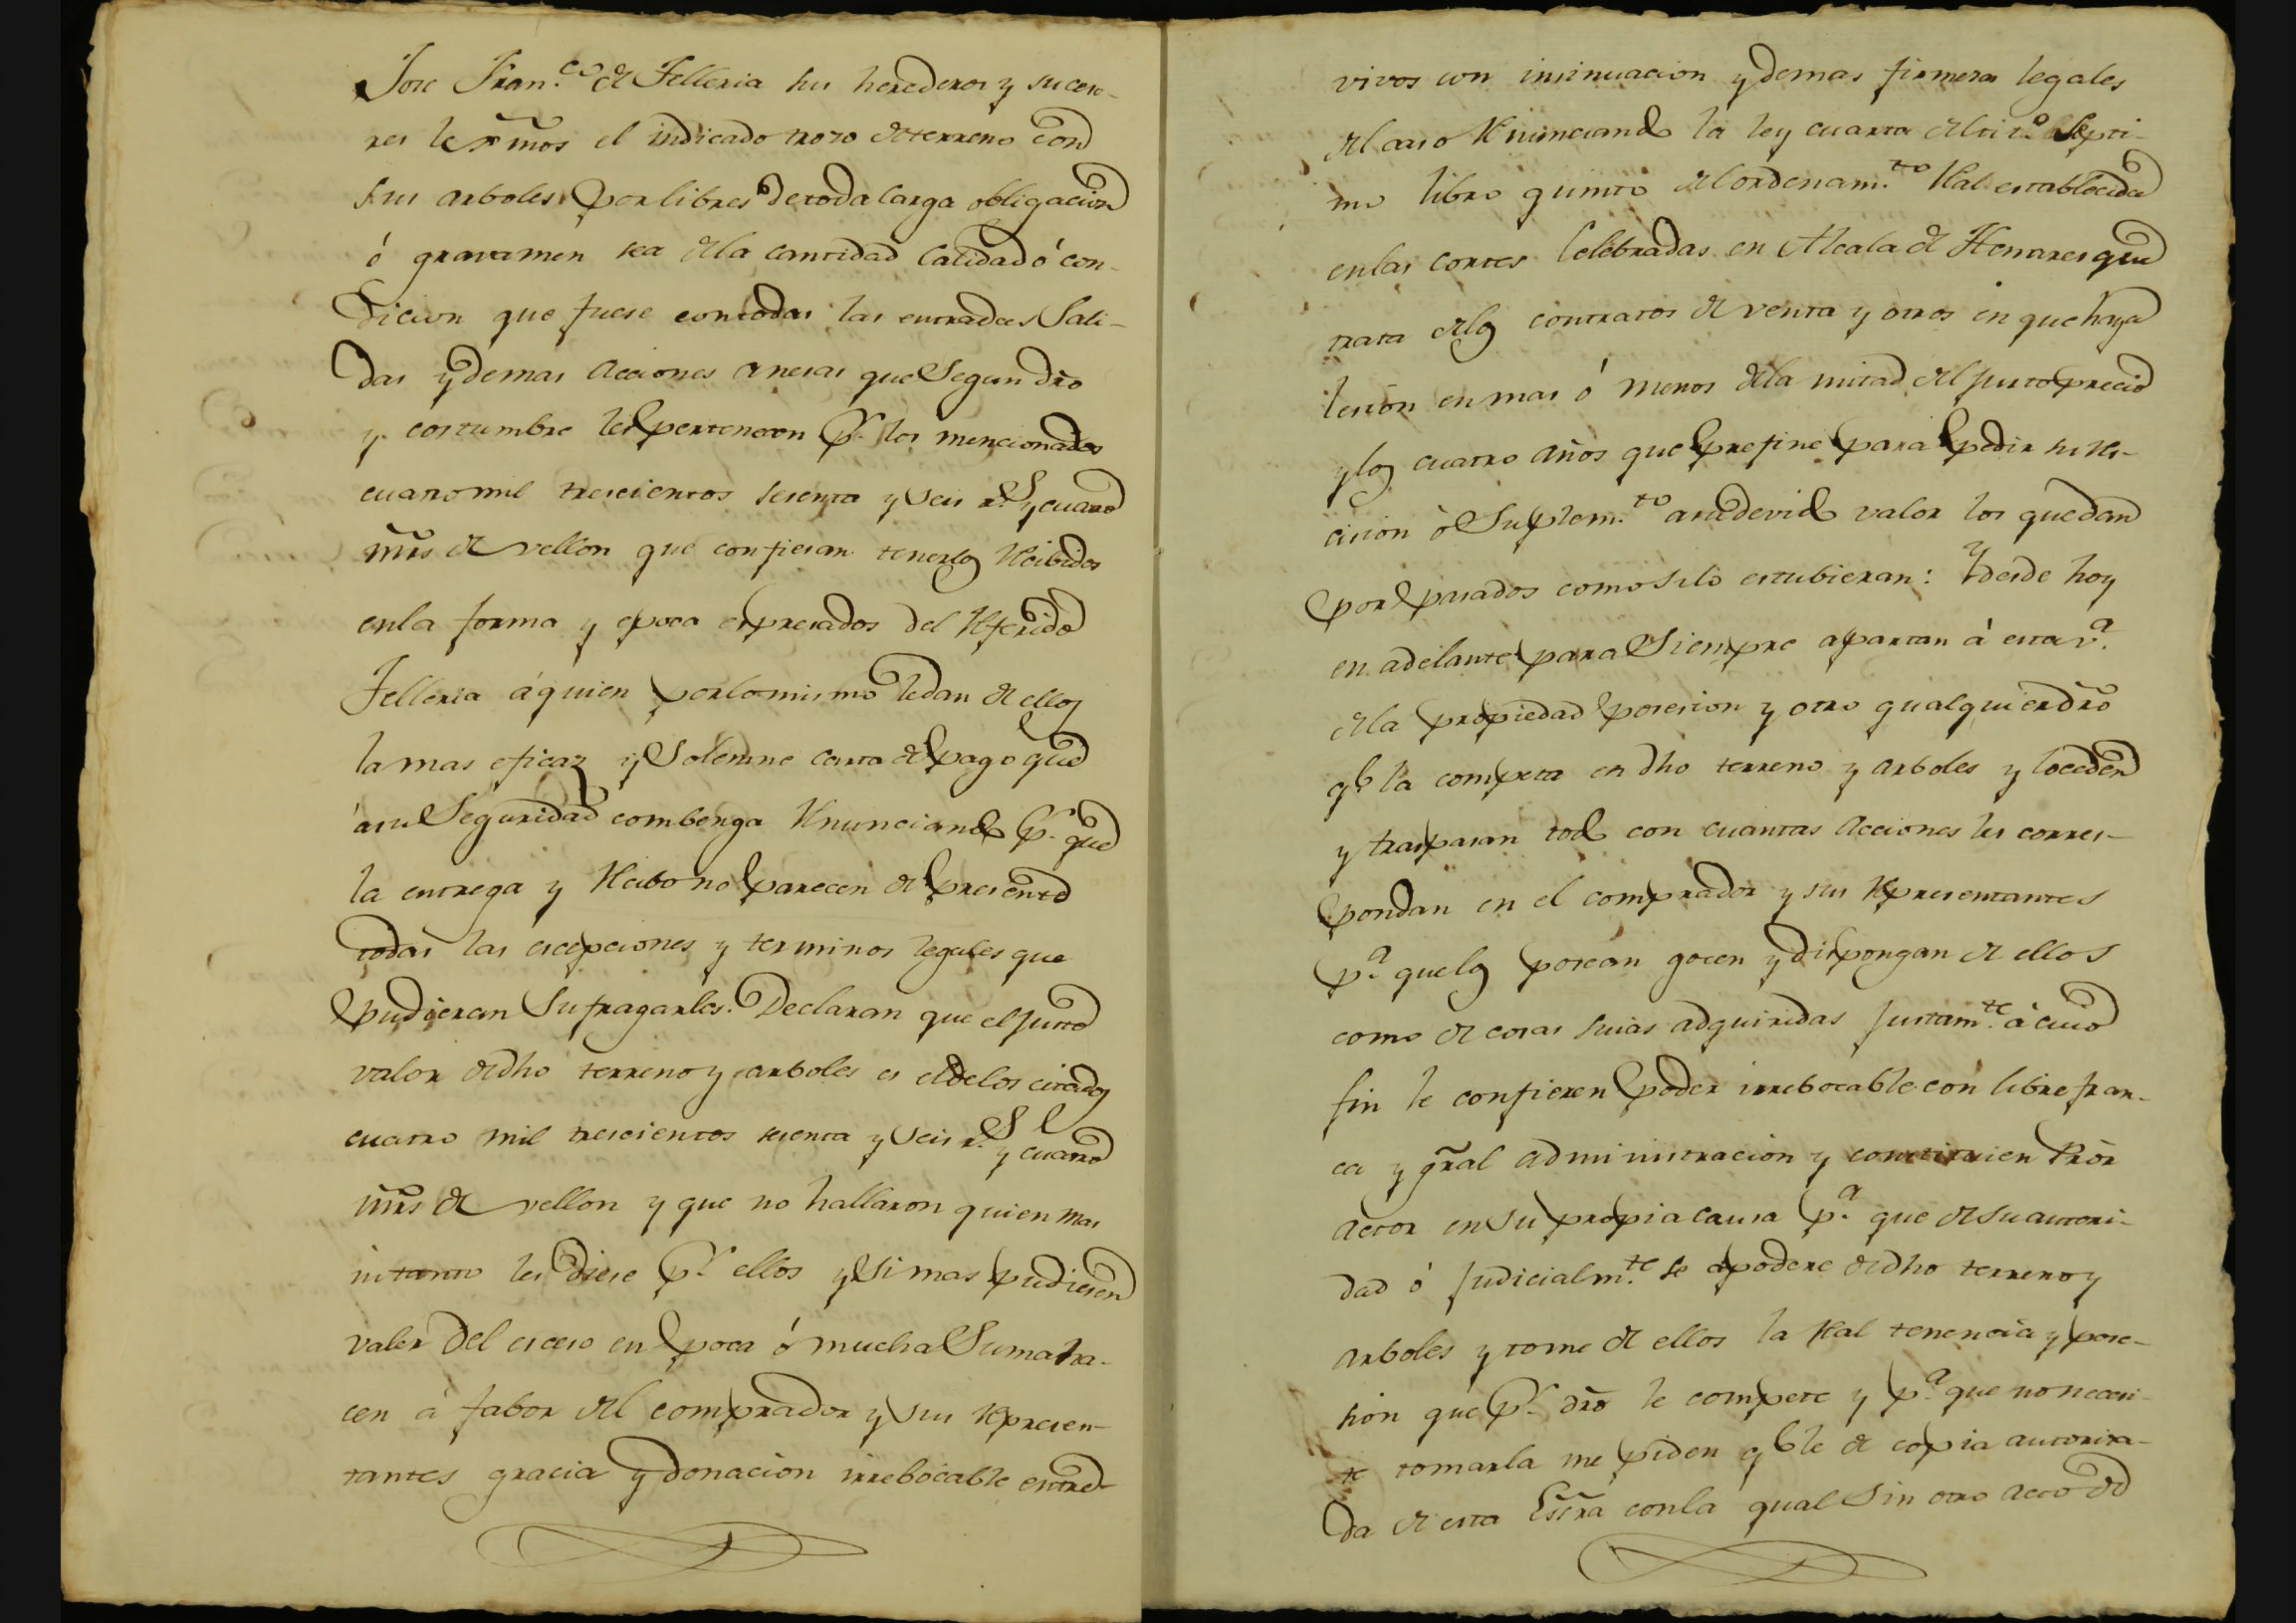 Jose Fran.co de Telleria sus herederos y suceso-
res lexmos el indicado trozo de terreno con
sus arboles por libres de toda carga obligacion
ó gravamen sea de la cantidad calidad ó con-
dicion que fuese con todas las entradas sali-
das y demas acciones anesas que segun dro
y costumbre les pertenecen pr. los mencionados
cuatro mil trescientos sesenta y seis rs. y cuatro
mrs de vellon que confiesan tenerlos recibidos
en la forma y epoca espresados del referido
Telleria á quien por lo mismo le dan de ellos
la mas eficaz y solemne carta de pago que
á su seguridad combenga renunciando pr. que
la entrega y recibo no parecen de presente
todas las escepciones y terminos legales que
pudieran sufragarles. Declaran que el justo
valor de dho terreno y arboles es el de los citados
cuatro mil trescientos sesenta y seis rs. y cuatro
mrs de vellon y que no hallaron quien mas
ni tanto les diese pr. ellos y si mas pudiesen
valer del esceso en poca ó mucha suma ha-
cen á fabor del comprador y sus represen-
tantes gracia y donacion irrebocable entre
vivos con insinuacion y demas firmezas legales
del caso renunciando la ley cuarta del tit.o septi-
mo libro quinto del ordenam.to Real establecida
en las cortes celebradas en Alcala de Henares que
trata de los contratos de venta y otros en que haya
lesion en mas ó menos de la mitad del justo precio
y los cuatro años que prefine para pedir su res-
cision ò suplem.to a su devido valor los que dan
por pasados como si lo estubieran: y desde hoy
en adelante para siempre apartan á esta v.a
de la propiedad posesion y otro qualquier dro
qe. la competa en dho terreno y arboles y lo ceden
y traspasan todo con cuantas acciones les corres-
pondan en el comprador y sus representantes
p.a que los posean gocen y dispongan de ellos
como de cosas suias adquiridas justam.te á cuio
fin le confieren poder irrebocable con libre fran-
ca y gral administracion y constituien Pror
actor en su propia causa p.a que de su autori-
dad ó judicialm.te se apodere de dho terreno y
arboles y tome de ellos la real tenencia y pose-
sion que pr. dro le compete y p.a que no necesi-
te tomarla me piden qe. le de copia autoriza-
da de esta Escra con la qual sin otro acto de